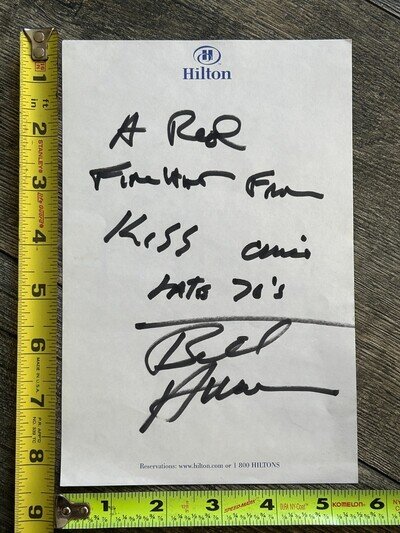 Hilton
A Real
Fire Hat From
KISS circa
Late 70's
Bill
Reservations: www.hilton.com or 1 800 HILTONS
1
in
ft
2
3
4
5
6
MADE IN U.S.A.
7
8
9
1 2 3 4 5 6
KOMELON